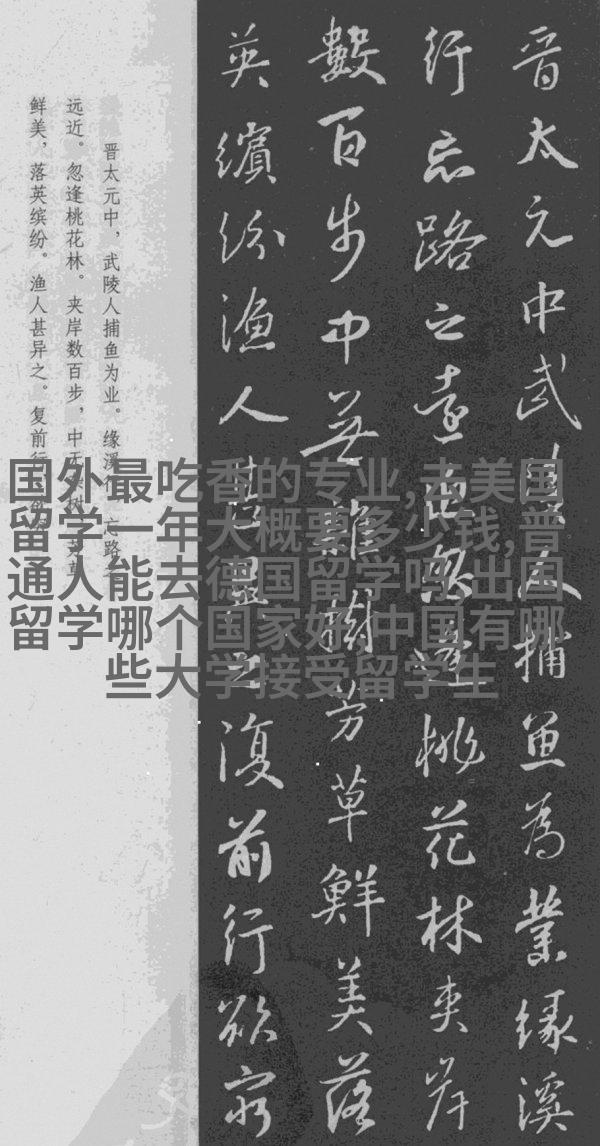 晋太元中武陵人捕魚為業緣溪
行忘路之遠近忽逢桃花林夾岸
數百步中無雜樹芳草鮮美落
英繽紛漁人甚異之復前行欲窮
晋太元中，武陵人捕鱼为业。缘溪行，忘路之
远近。忽逢桃花林。夹岸数百步，中无杂树，芳草
鲜美，落英缤纷。渔人甚异之。复前行，欲
国外最吃香的专业,去美国
留学一年大概要多少钱,普
通人能去德国留学吗,出国
留学哪个国家好,中国有哪
些大学接受留学生